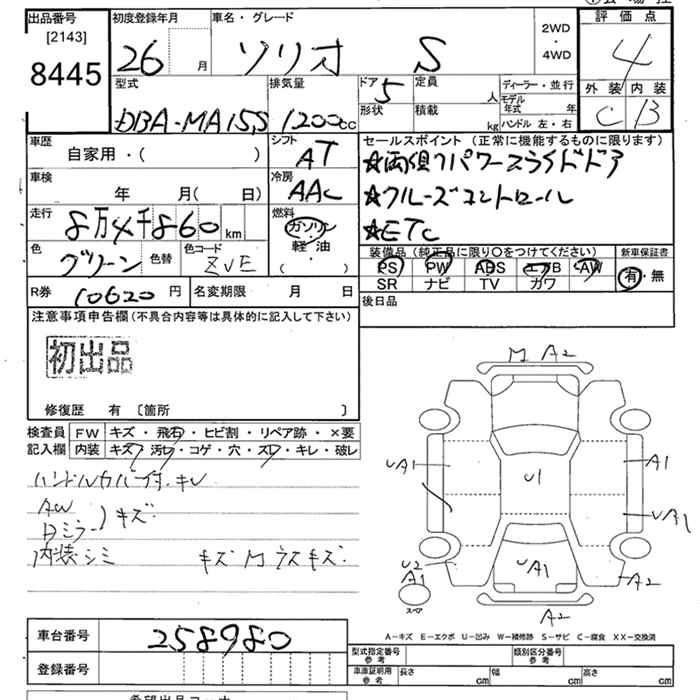 出品番号 初度登録年月 車名・グレード 評価点
[2143] 2WD
8445 26 月 ソリオ S ・ 4WD 4
外装 内装
C B
型式 排気量 ドア 5 定員 人 ディーラー・並行
DBA-MA15S 1200cc 形状 積載 kg モデル年式 年
ハンドル 左・右
車歴 シフト セールスポイント (正常に機能するものに限ります)
自家用・( ) AT ★両側パワースライドドア
車検 冷房
年 月( 日) AAC ★クルーズコントロール
走行 燃料
8万4千860km ガソリン ★ETC
・
軽油
・
( )
色 グリーン 色替 色コード ZVE
装備品 (純正品に限り○をつけてください) 新車保証書
PS PW ABS エアB AW 有・無
SR ナビ TV カワ
R券 10620円 名変期限 月 日 後日品
注意事項申告欄(不具合内容等は具体的に記入して下さい)
初出品
修復歴 有 〔箇所 〕
検査員 FW キズ・飛石・ヒビ割・リペア跡・×要
記入欄 内装 キズ・汚レ・コゲ・穴・スレ・キレ・破レ
ハンドルカバー付.キレ
AW
Dミラー )キズ
内装シミ キズMラスキズ.
M A2
UA1 U1 A1
UB1
U2 A1 UA1 A2
スペア
A2
A-キズ E-エクボ U-凹み W-補修跡 S-サビ C-腐食 XX-交換済
車台番号 258980
登録番号
型式指定番号 参考 類別区分番号 参考
車庫証明用 参考 長さ cm 幅 cm 高さ cm